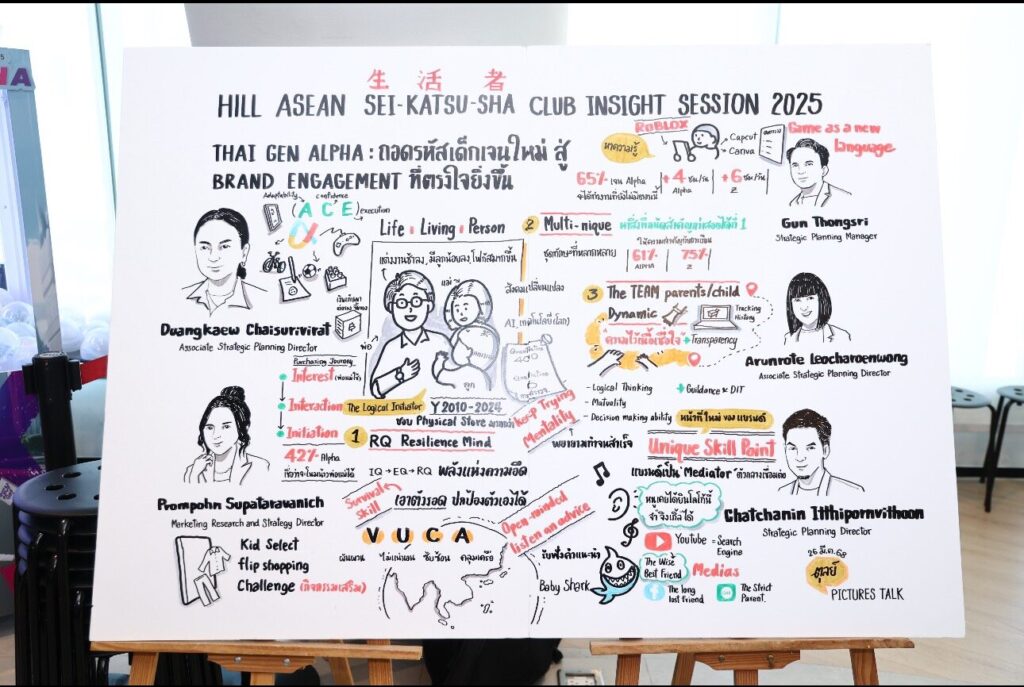 生活者
HILL ASEAN SEI-KATSU-SHA CLUB INSIGHT SESSION 2025
THAI GEN ALPHA : ถอดรหัสเด็กเจนใหม่ สู่
BRAND ENGAGEMENT ที่ตรงใจยิ่งขึ้น
Adaptability
confidence
(A C E) execution
Duangkaew Chaisurivirat
Associate Strategic Planning Director
Life Living Person
แต่งงานช้าลง, มีลูกน้อยลง, โฟกัสมากขึ้น
พ่อ
แม่
ลูก
สังคมเปลี่ยนแปลง
Purchasing Journey
Interest
Interaction
Initiation
42% Alpha
The Logical Initiator
Y 2010-2024
ชอบ Physical Store มากกว่า
Keep Trying Mentality
พยายามทำจนสำเร็จ
1 RQ Resilience Mind
IQ → EQ → RQ พลังแห่งความอึด
Survival skill
เอาตัวรอด ปกป้องตัวเองได้
V U C A
ผันผวน ไม่แน่นอน ซับซ้อน คลุมเครือ
Open-minded
listen an advice
รับฟังคำแนะนำ
Prompohn Supatarawanich
Marketing Research and Strategy Director
Kid Select
flip shopping
Challenge (กิจกรรมเสริม)
ROBLOX
หาความรู้
Capcut
Canva
Game as a new
language
65% เจน Alpha
+4 ชม./วัน
Alpha
+6 ชม./วัน
Z
Gun Thongsri
Strategic Planning Manager
2 Multi-nique
ชุดทักษะที่หลากหลาย
61%
ALPHA
75%
Z
3 The TEAM parents/child
Dynamic
Tracking
History
+ Transparency
Arunrote Leocharoenwong
Associate Strategic Planning Director
- Logical Thinking
- Mutuality
- Decision making ability
+ Guidance x DIT
หน้าที่ใหม่ ของ แบรนด์
Unique Skill Point
แบรนด์เป็น "Mediator" ตัวกลางเชื่อมต่อ
Chatchanin Itthipornvithoon
Strategic Planning Director
หนูเคยได้ยินโลโก้นี้
จำจิงเกิ้ลได้
YouTube = Search
Engine
The Wise
Best Friend
Medias
Baby Shark
The long
lost friend
The Strict
Parent.
26 มี.ค. 68
PICTURES TALK